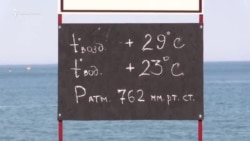 t°возд. + 29°C
t°вод. + 23°C
Р атм. 762 мм.рт.ст.